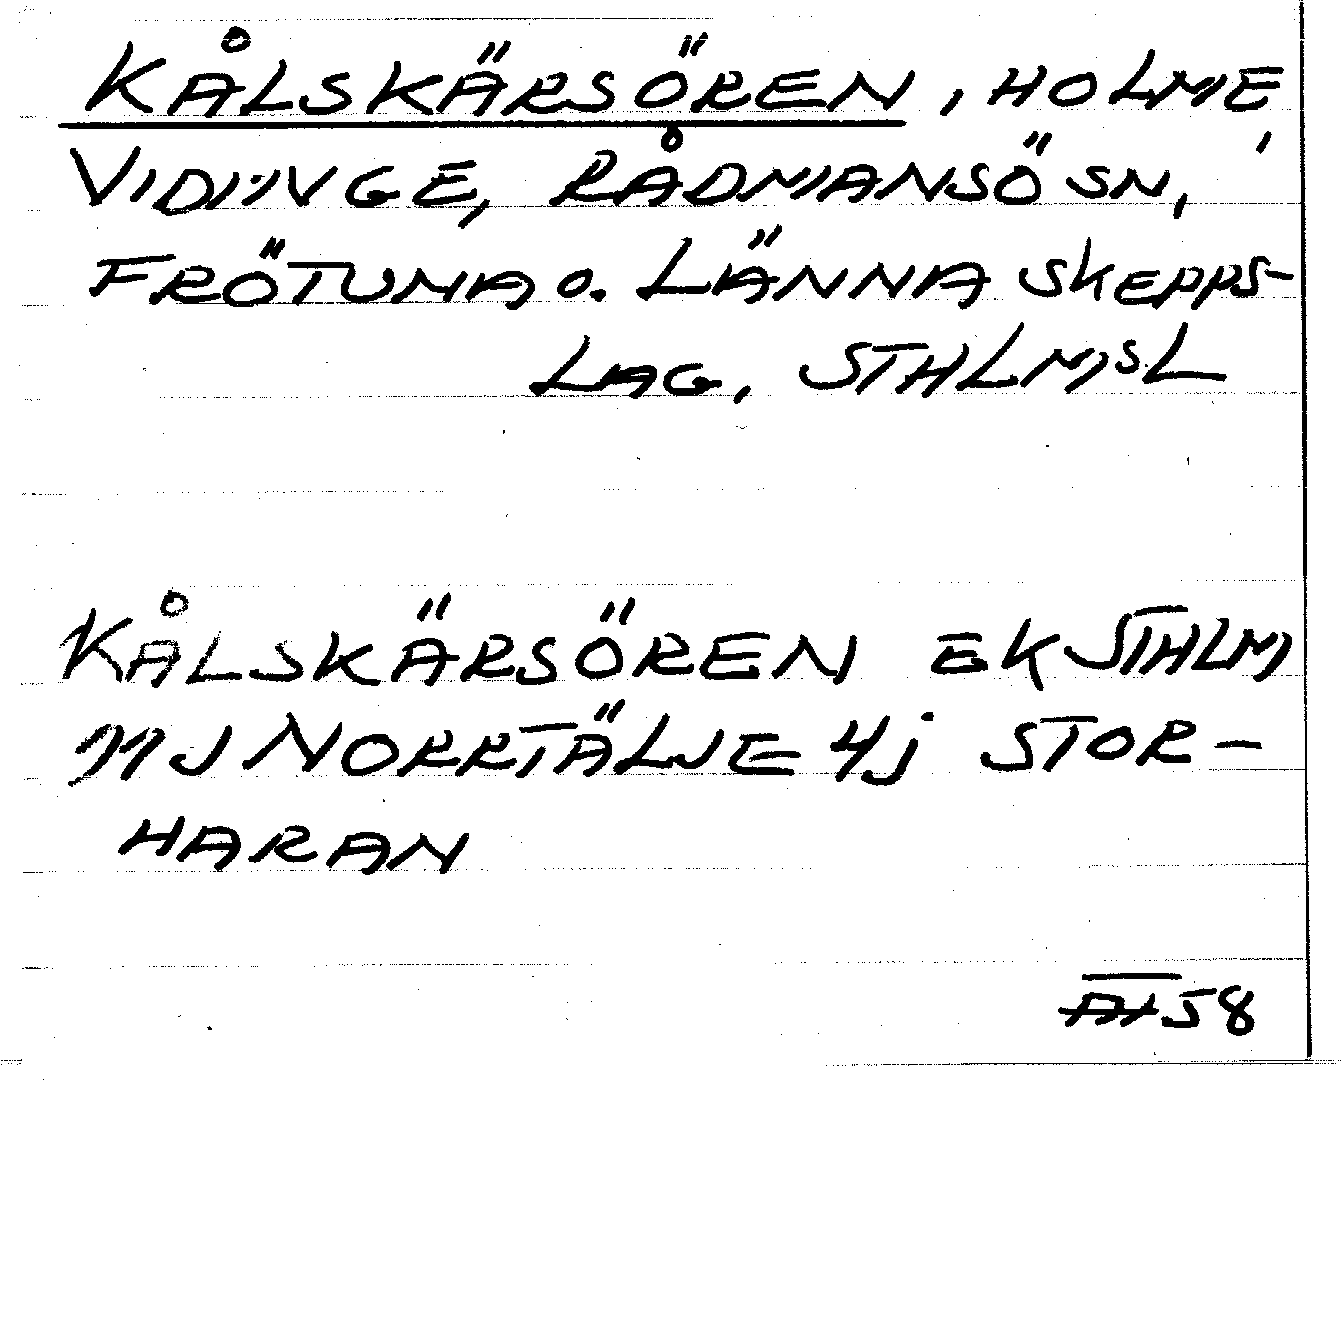 KÅLSKÄRSÖREN, HOLME,
VIDINGE, RÅDMANSÖ SN,
FRÖTUNA O. LÄNNA SKEPPS-
LAG, STHLMSL
KÅLSKÄRSÖREN EK STHLM
11J NORRTÄLJE 4j STOR-
HARAN
58